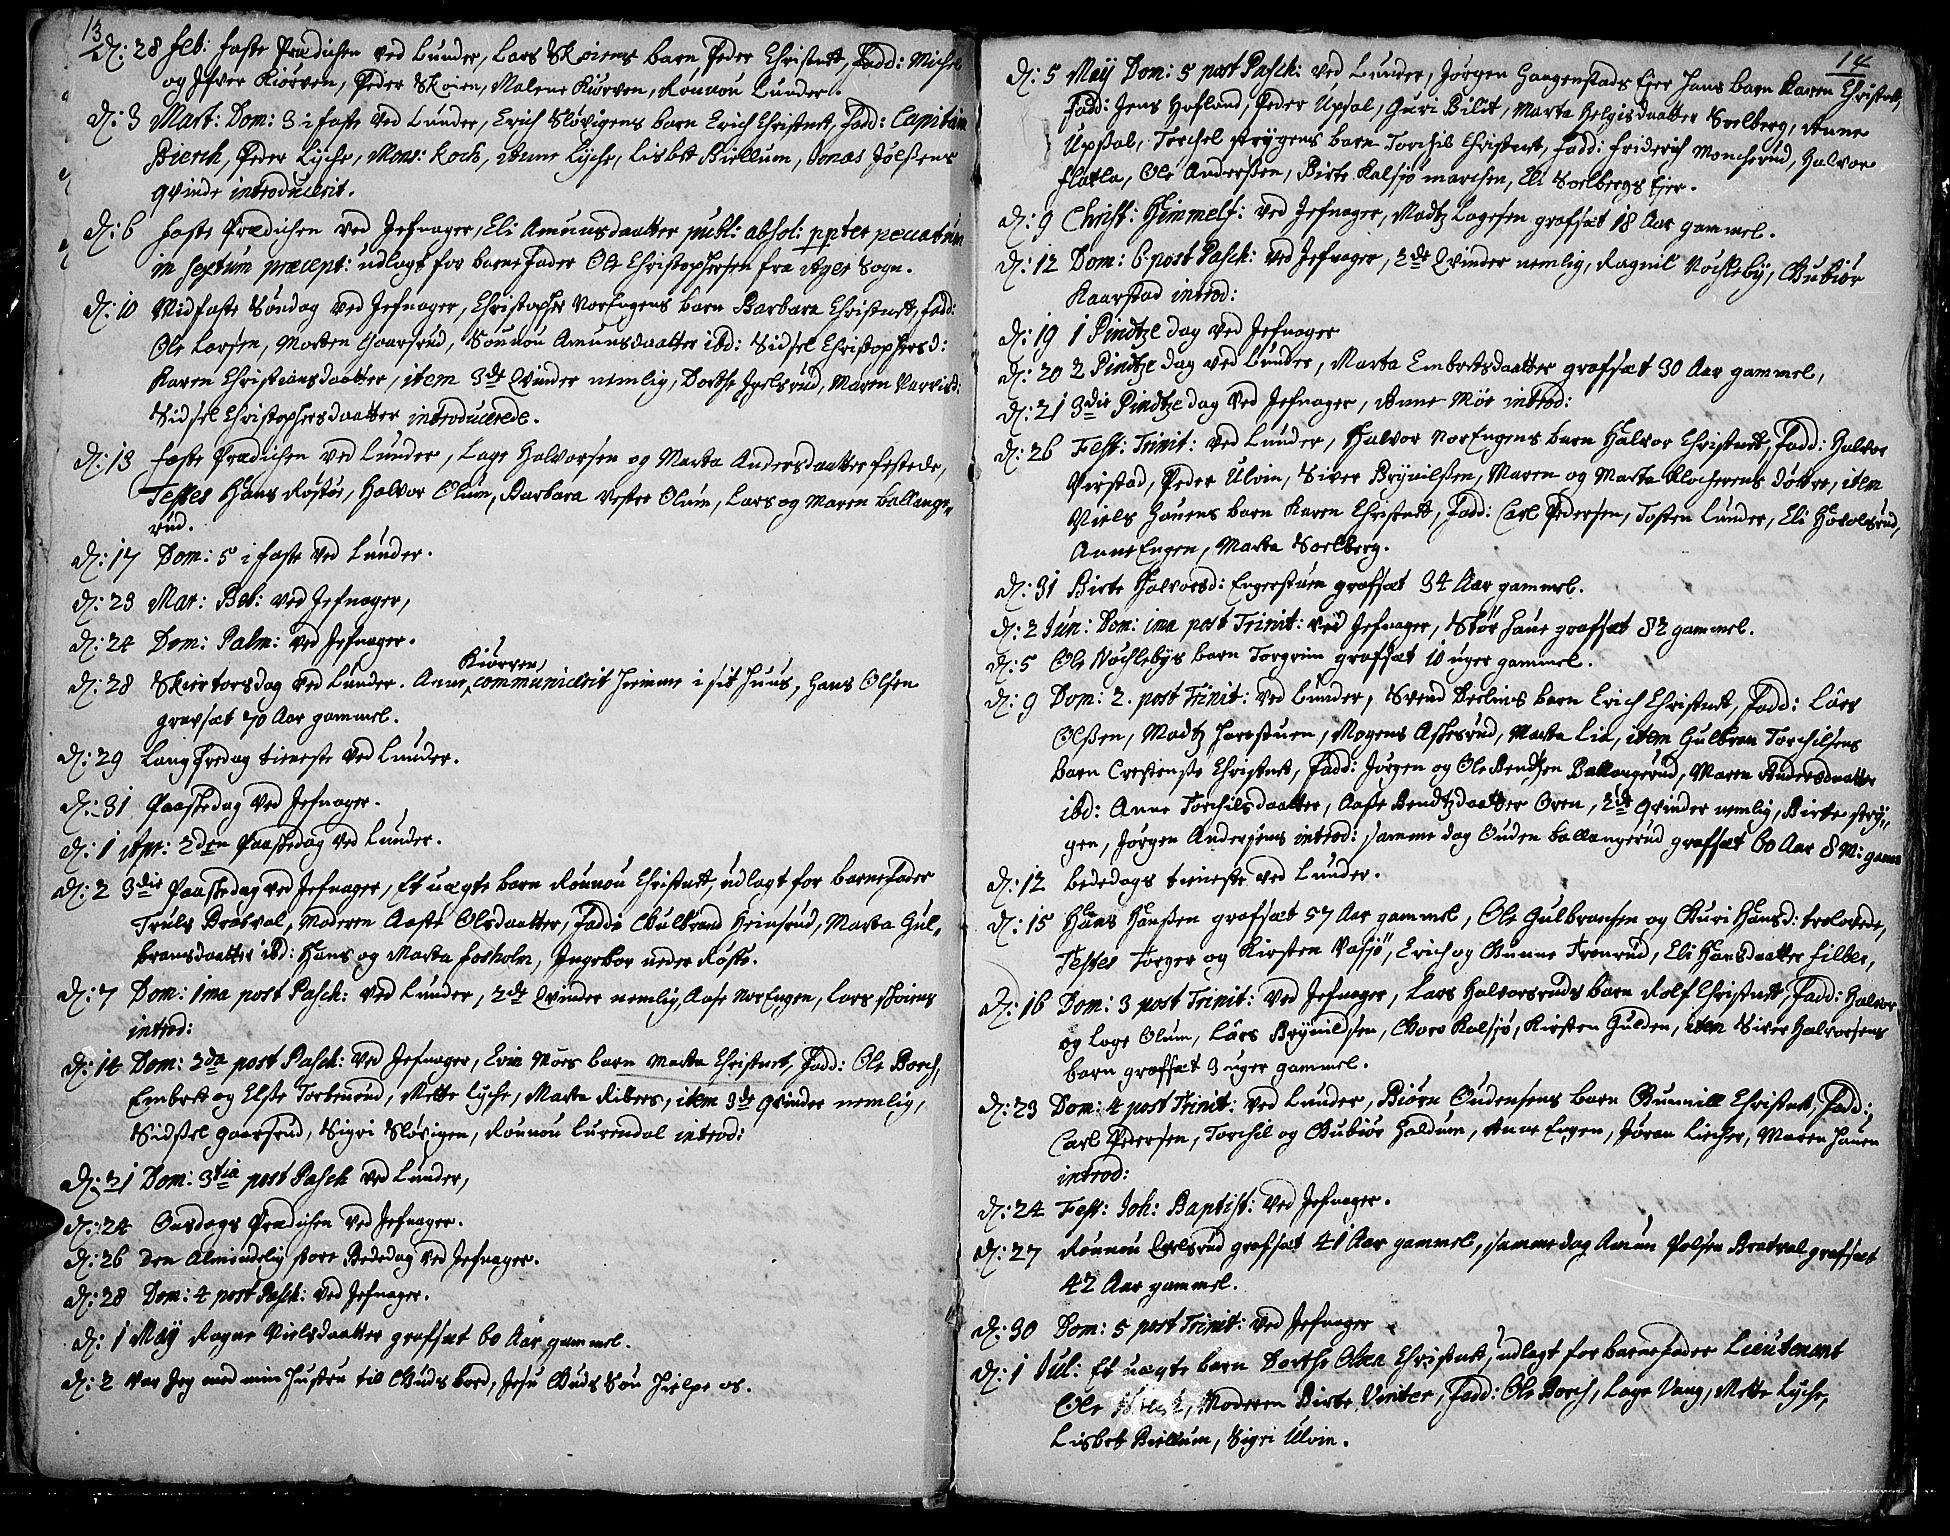 13
D: 28 Feb: faste Prædichen ved Lunder, Lars Skøiens barn Peder Christnet, Fadd: Michel
og Ifver Kiørven, Peder Skøien, Malene Kiørven, Rønnou Lunder.
D: 3 Mart: Dom: 3 i faste ved Lunder, Erich Sløvigens barn Erich Christnet, Fadd: Capitain
Bierch, Peder Lyche, Mons: Koch, Anne Lyche, Lisbet Biellum, Jonas Jölßens
qvinde introducerit.
D: 6 faste Prædichen ved Jefnager, Eli Amunsdaatter publ: absol: ppter peccatum
in sextum præcept: udlagt for barne Fader Ole Christophersen fra Agers Sogn.
D: 10 Midfaste Söndag ved Jefnager, Christopher NorEngens barn Barbara Christnet, Fadd:
Ole Larsen, Morten Gaarsrud, Sønnou Amunsdaatter ibd: Sidsel Christophersd:
Karen Christiansdaatter, item 3de Qvinder nemlig, Dorthe Igelsrud, Maren
Sidsel Christophersdaatter introducerede.
D: 13 faste Prædichen ved Lunder, Lage Halvorsen og Marta Andersdaatter festede,
Testes Hans Røste, Halvor Olum, Barbara Vester Olum, Lars og Maren Ballange„
rud.
D: 17 Dom: 5 i faste ved Lunder.
D: 23 Mar: Bet: ved Jefnager,
D: 24 Dom: Palm: ved Jefnager.
Kiørven,
D: 28 Skiertorsdag ved Lunder. Anne communicerit hiemme i sit huus, Hans Olsen
gravsat 70 Aar gammel.
D: 29 Langfredag tieneste ved Lunder.
D: 31 Paaskedag ved Jefnager.
D: 1 Apr: 2den Paaskedag ved Lunder.
D: 2 3die Paaskedag ved Jefnager, Et uægte barn Rønnou Christnet, udlagt for barnefader
Truls Bratval, Moderen Aaste Olsdaatter, Fadd: Gulbrand Heinsrud, Marta Gul„
bransdaatter ibd: Hans og Marta Fosholm, Ingebor neder Røste.
D: 7 Dom: 1ma post Pasch: ved Lunder, 2de Qvinder nemlig, Aase NorEngen, Lars skøiens
introd:
D: 14 Dom: 2da post Pasch: ved Jefnager, Evin Moes barn Marta Christnet, Fadd: Ole Borch,
Embret og Elsse Torbenrud, Mette Lyche, Marta Ribers, item 3de qvinder nemlig,
Sidssel Gaarsrud, Sigri Sløvigen, Rønnou Lurendal introd:
D: 21 Dom: 3tia post Pasch ved Lunder,
D: 24 Onsdags Prædichen ved Jefnager.
D: 26 Den Almindelig store Bededag ved Jefnager.
D: 28 Dom: 4 post Pasch: ved Jefnager.
D: 1 May Ragne Nielsdaatter grafsat 60 Aar gammel.
D: 2 var Jeg med min hustru til Guds bord, Jesu Guds Søn hielpe os.
14
D: 5 May Dom: 5 post Pasch: ved Lunder, Jörgen Haagenstads Ejer Hans barn Karen Christnet,
Fadd: Jens Hofland, Peder Upsal, Guri Bilit, Marta Helgisdaatter Soelberg, Anne
Upsal, Torchel strygens barn Torchil Christnet, Fadd: Friderich Moncherud, Halvor
flatla, Ole Anderßen, Birte Kalsjö marchen, Eli Soelbergs Ejer.
D: 9 Christ: Himmelf: ved Jefnager, Madtz Lagesen grafsat 18 Aar gammel.
D: 12 Dom: 6 post Pasch: ved Jefnager, 2de Qvinder nemlig, Ragnil Nochleby, Gubiör
Kaarstad introd:
D: 19 1 Pindtze dag ved Jefnager
D: 20 2 Pindtze dag ved Lunder, Marta Embretsdaatter grafsat 30 Aar gammel,
D: 21 3die Pindtze dag ved Jefnager, Anne Moe introd:
D: 26 Fest: Trinit: ved Lunder, Halvor NorEngens barn Halvor Christnet, Fadd: Halvor
Virstad, Peder Ulvin, Siver Brynilßen, Maren og Marta Klocherens döttre, item
Niels Hauens barn Karen Christnet, Fadd: Carl Pedersen, Tosten Lunder, Eli Hovolsrud,
Anne Engen, Marta Soelberg.
D: 31 Birte Halvorsd: Engerstuen grafsat 34 Aar gammel.
D: 2 Jun: Dom: 1ma post Trinit: ved Jefnager, Stör Haue grafsat 82 gammel.
D: 5 Ole Nochlebys barn Torgrim grafsat 10 uger gammel.
D: 9 Dom: 2. post Trinit: ved Lunder, Svend Derlins barn Erich Christnet, Fadd: Lars
Olßen, Madtz Harestuen, Mogens Askesrud, Marta Lia, item Gulbran Torchilsens
barn Crestense Christnet, Fadd: Jörgen og Ole Bendtzen Ballangerud, Maren Andersdaatter
ibd: Anne Torchilsdaatter, Aase Bendtzdaatter Oren, 2de qvinder nemlig, Birte stry„
gen, Jörgen Andersens introd: samme dag Ouden Ballangerud grafsat 60 Aar 8 M: gamel
D: 12 bededags tieneste ved Lunder.
D: 15 Hans Hanßen grafsat 57 Aar gammel, Ole Gulbransen og Guri Hansd: trolovede,
Testes Torger og Kirsten Vassjö, Erich og Gunne Trenrud, Eli Hansdaatter Filber,
D: 16 Dom: 3 post Trinit: ved Jefnager, Lars Halvorsruds barn Rolf Christnet, Fadd: Halvor
og Lage Olum, Lars Brynildsen, Goro Kalsjö, Kirsten Gulden, item Siver Halvorsens
barn grafsat 3 uger gammel.
D: 23 Dom: 4 post Trinit: ved Lunder, Biörn Oudensens barn Gunnill Christnet, Fadd:
Carl Pedersen, Torchil og Gubiör Haldum, Anne Engen, Jöran Liecher, Maren Hauen
introd:
D: 24 Fest: Joh: Baptist: ved Jefnager.
D: 27 Rønnou Qvelsrud grafsat 41 Aar gammel, samme dag Amun Polsen Bratval grafsat
42 Aar gammel.
D: 30 Dom: 5 post Trinit: ved Jefnager
D: 1 Jul: Et uægte barn Dorthe Olsen Christnet, udlagt for barnefader Lieutenant
Ole, Moderen Birte Vinter, Fadd: Ole Borch, Lage Vang, Mette Lyche,
Lisbet Biellum, Sigri Ulvin.